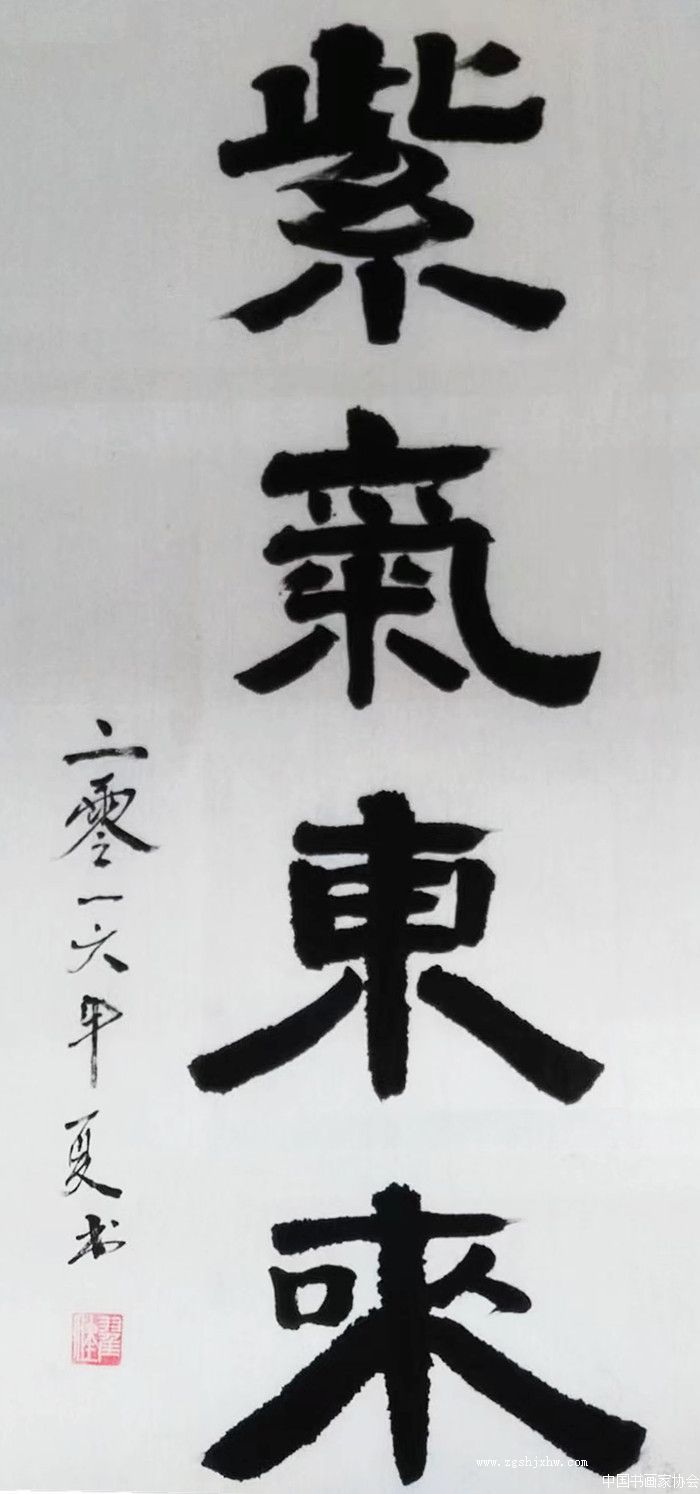 紫氣東來
二零一六年夏书
www.zgshjxhw.com
中国书画家协会